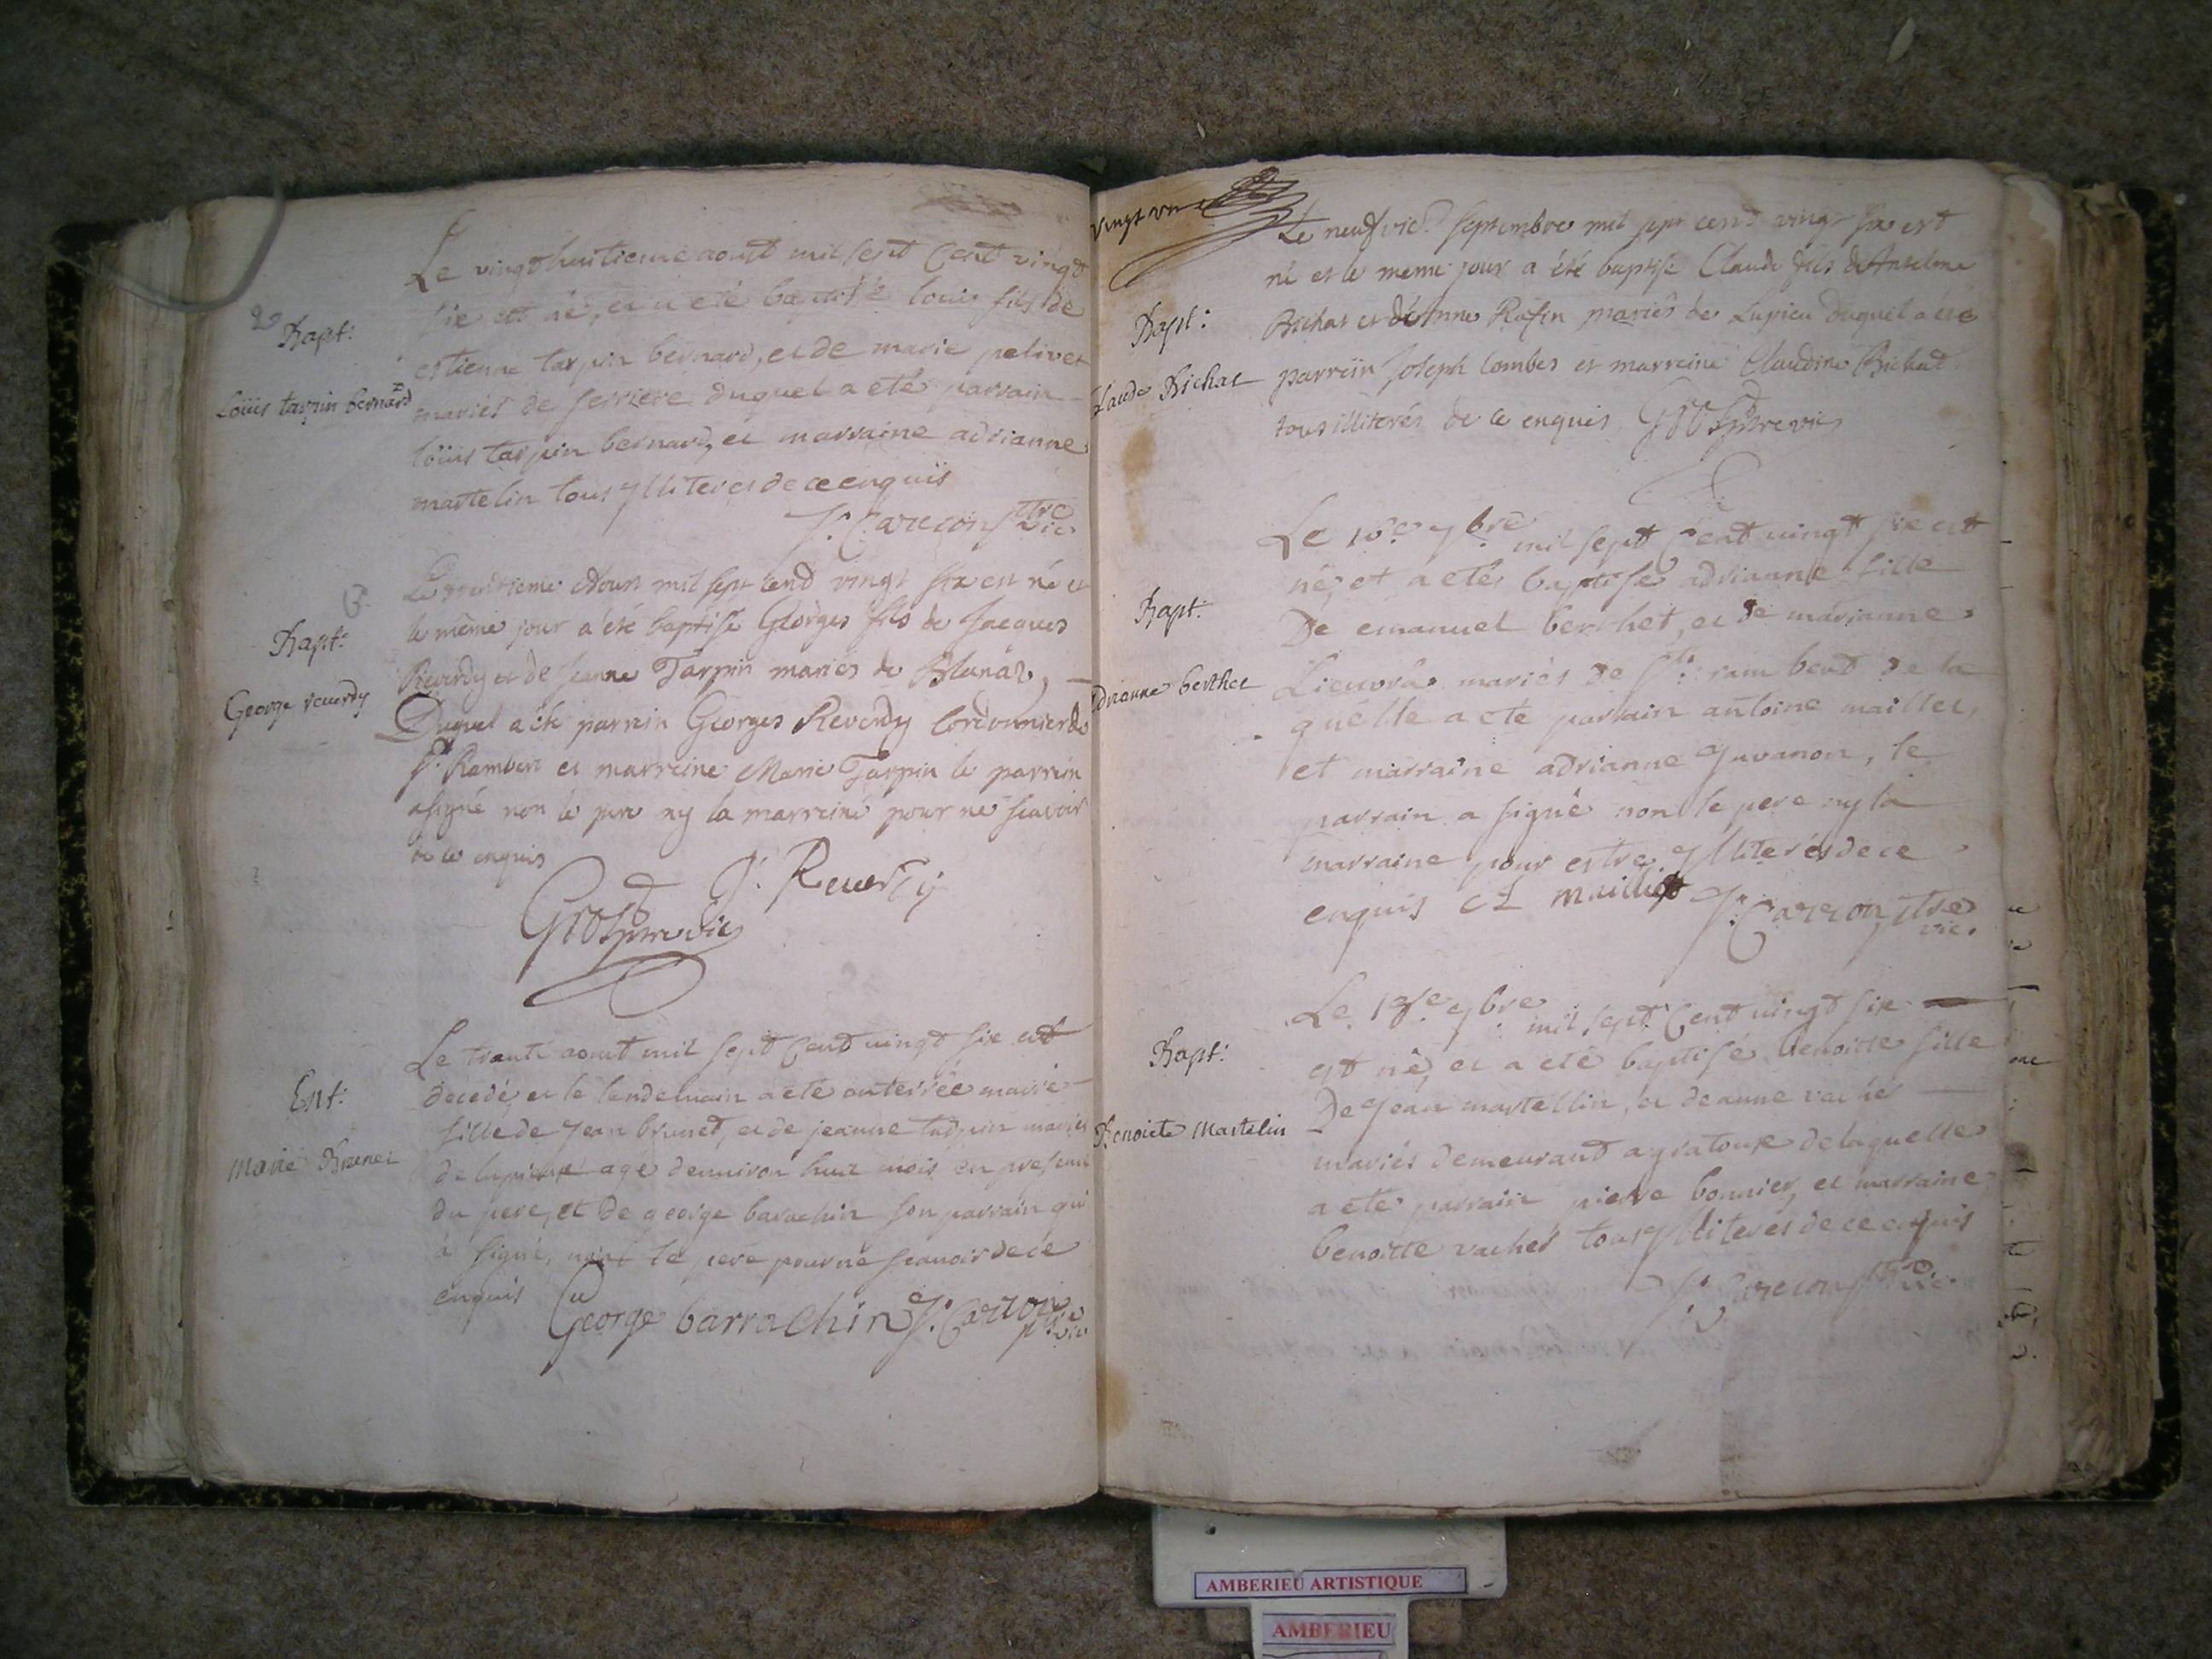 Bapt:
Loüis tarpin bernard
Le vingt huitieme aoust mil sept Cent vingt
six est né, et a eté baptisé louis fils de
estienne tarpin bernard, et de marie pelivet
mariés de serriere duquel a eté parrain
loüis tarpin bernard, et marraine adrianne
martelin tous ylliteres de ce enquis
J. Carecon ptre vic
Bapt:
George reuerdy
Le trentieme Aoust mil sept cend vingt six est né et
le même jour a été baptisé Géorges fils de Jacques
Reverdy et de Jeanne Tarpin mariés de Blanaz,
Duquel a été parrein Georges Reverdy Cordonnier de
St. Rambert et marreine Marie Tarpin le parrein
a signé non le pere ny la marreine pour ne scavoir
de ce enquis
G. Reuerdy
Gros ptre vic
Ent:
Marie Brunet
Le trante aoust mil sept Cent vingt six est
decedé, et le lendemain a eté anterrée marie
fille de Jean brunet, et de jeanne tarpin mariés
de lupieux age denuiron huit mois en presence
du pere, et de george barachin son parrain qui
à signé, non le pere pour ne scauoir de ce
enquis
George barrachin J. Carecon ptre vic
vingt un
Bapt:
Claude Bichat
Le neufvie septembre mil sept cend vingt six est
né et le meme jour a été baptisé Claude fils d'Antelme
Bichat et de Anne Rufin mariés de Lupieu duquel a été
parrein Joseph Combes et marreine Claudine Bichat
tous illiterés de ce enquis Gros ptre vic
Bapt:
adrianne berthet
Le 16e 7bre mil sept Cent vingt six est
né, et a eté baptisé adrianne fille
De emanuel berthet, et de marianne
Lieuvra mariés de St. rambert de la
quelle a eté parrain antoine maillet,
et marraine adrianne Juvanon, le
parrain a signé non le pere ny la
marraine pour estre ylliterés de ce
enquis maillet J. Carecon ptre
vic.
Bapt:
Benoite Martelin
Le 7bre mil sept Cent vingt six
est né, et a eté baptisé benoitte fille
De Jean martellin, et de anne vachet
mariés demeurant a gratoux de laquelle
a eté parrain pierre bonnier, et marraine
benoitte vacher tous ylliteres de ce enquis
J. Carecon ptre vic.
AMBERIEU ARTISTIQUE
AMBERIEU